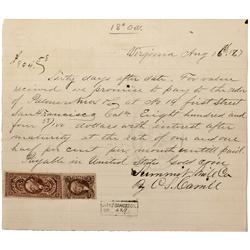 Virginia Aug 16th 187
Sixty days after date. For value
received we promise to pay to the order
of Palmer at No 19 First Street
San Francisco Cala Eight hundred and
four dollars with interest after
maturity at the rate of one and one
half per cent per month until paid.
Payable in United States Gold Coin
Summit Mill Co
By C. L.